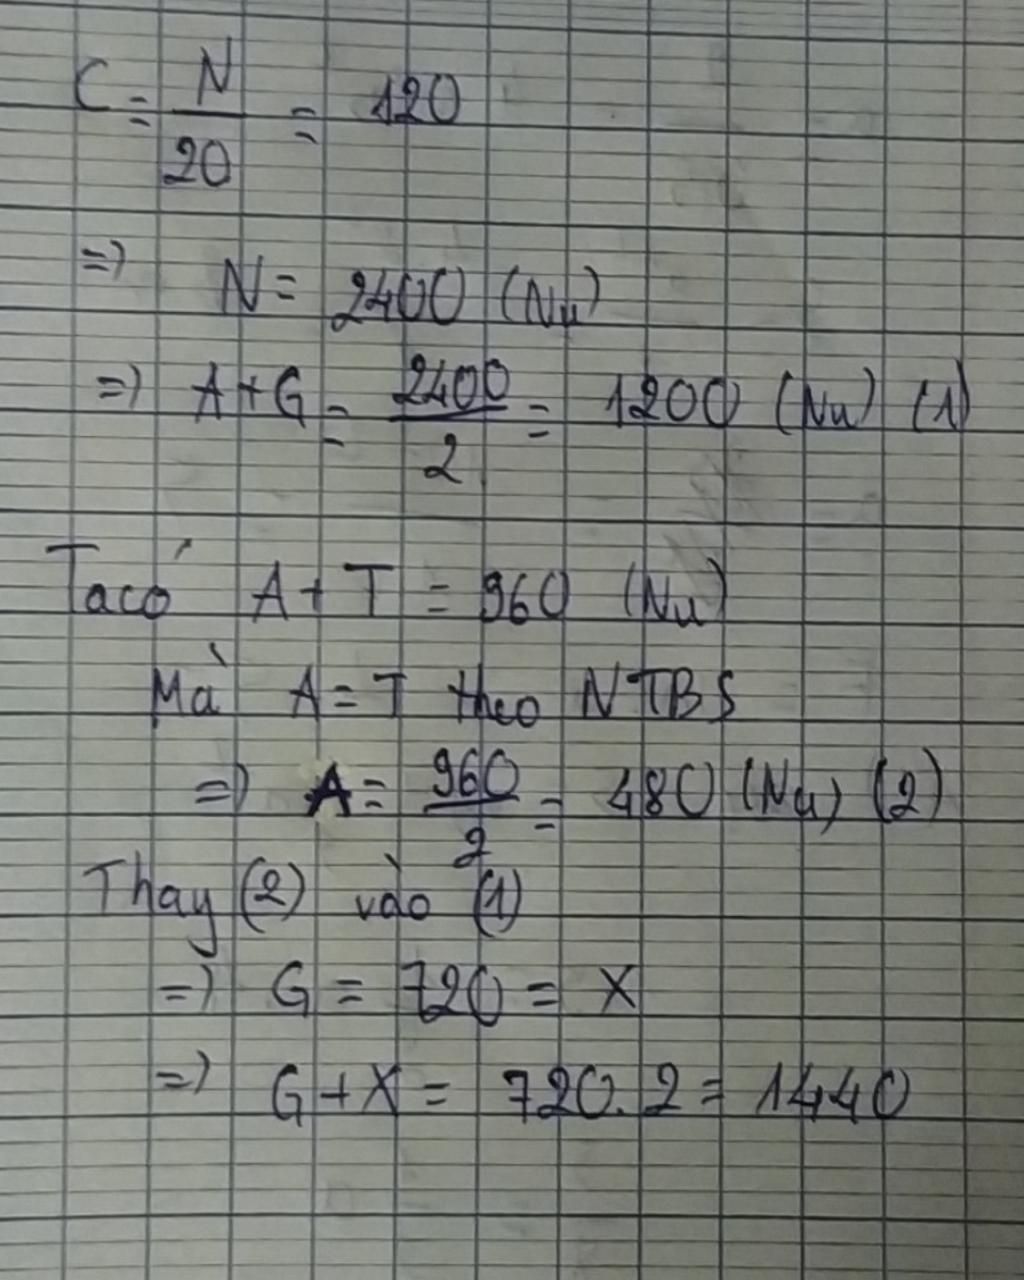 C = N/20 = 120
=> N = 2400 (Nu)
=> A+G = 2400/2 = 1200 (Nu) (1)
Ta có A + T = 960 (Nu)
Mà A = T theo NTBS
=> A = 960/2 = 480 (Nu) (2)
Thay (2) vào (1)
=> G = 720 = X
=> G + X = 720.2 = 1440